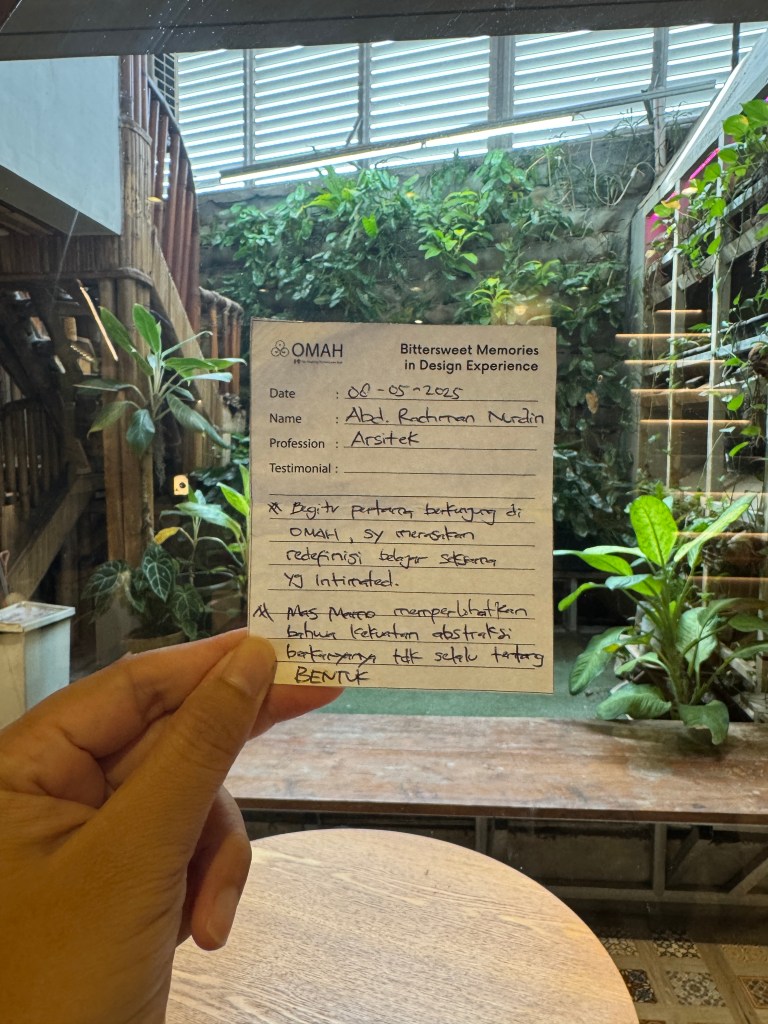 OMAH
Bittersweet Memories
in Design Experience
Date : 06-05-2025
Name : Abd. Rachman Nurdin
Profession : Arsitek
Testimonial :
Begitu pertama berkunjung di
OMAH, sy merasakan
redefinisi belajar
yg Intimated.
Mas Mamo memperlihatkan
bahwa kekuatan abstraksi
berkaryanya tdk selalu tentang
BENTUK